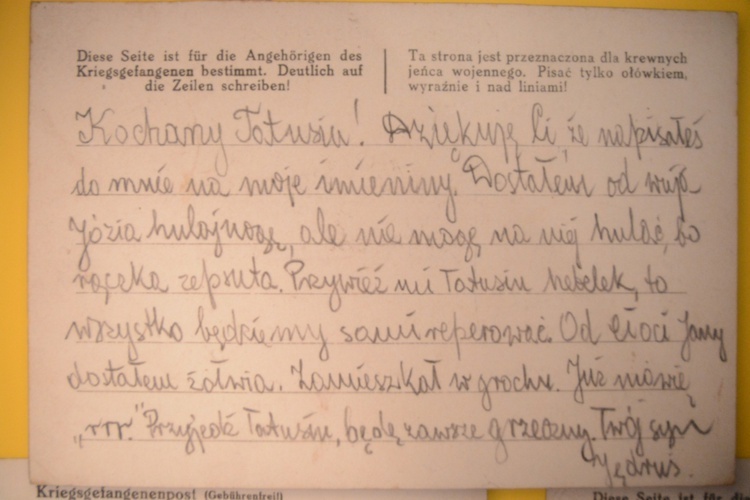 Diese Seite ist für die Angehörigen des
Kriegsgefangenen bestimmt. Deutlich auf
die Zeilen schreiben!
Ta strona jest przeznaczona dla krewnych
jeńca wojennego. Pisać tylko ołówkiem,
wyraźnie i nad liniami!
Kochany Tatusiu! Dziękuję Ci, że napisałeś
do mnie na moje imieniny. Dostałem od wuja
Józia hulajnogę, ale nie mogę na niej hulać, bo
rączka zepsuta. Przywieź mi Tatusiu hebelek, to
wszystko będziemy sami reperować. Od Cioci Jany
dostałem żółwia. Zamieszkał w grochu. Już mówię
„rrr." Przyjedź Tatusiu, będę zawsze grzeczny. Twój syn
Jędruś.
Kriegsgefangenenpost (Gebührenfrei!)
Diese Seite ist für die